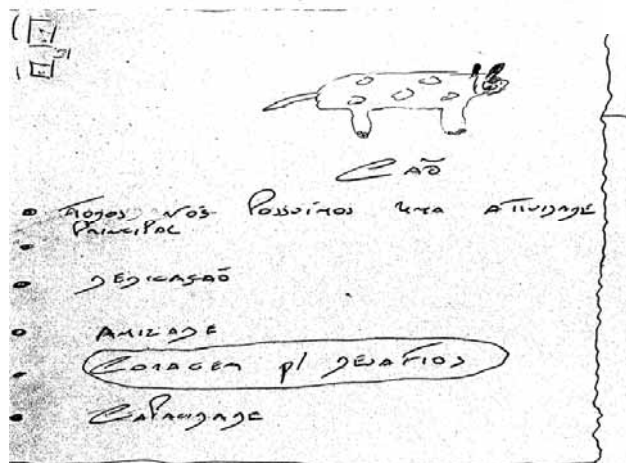 CÃO
TODOS NÓS POSSUIMOS UMA ATIVIDADE
PRINCIPAL
DEDICAÇÃO
AMIZADE
CORAGEM p/ DESAFIOS
CAPACIDADE